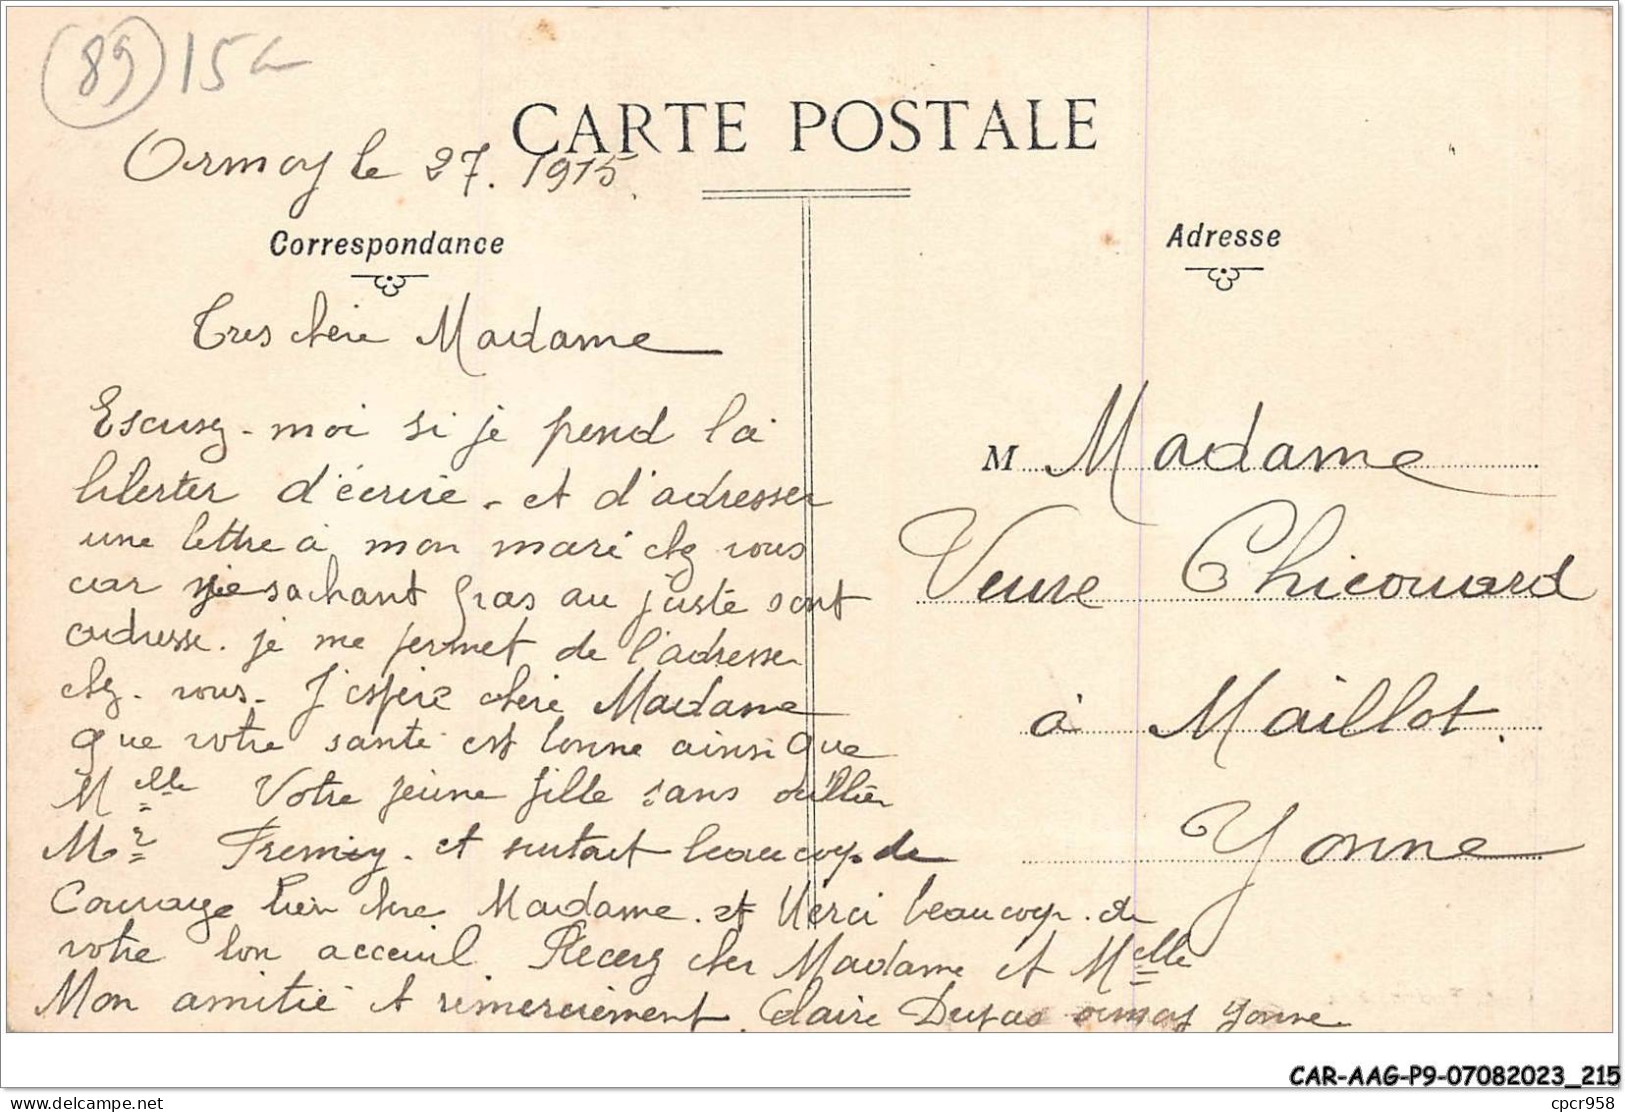 89 15
CARTE POSTALE
Ormoy le 27. 1915.
Correspondance
Tres chère Madame
Escusez-moi si je prend la
liberter d'écrire - et d'adresser
une lettre à mon mari chez vous
car ne sachant pras au juste sont
adresse. je me permet de l'adresser
chez. vous. J'espère chère Madame
que votre santé est bonne ainsi que
Melle Votre jeune fille sans oublier
Mr Fremiy. et surtout beaucoup de
Courage bien chere Madame. et Merci beaucoup. de
votre bon acceuil. Recevez cher Madame et Melle
Mon amitié et remerciement. Claire Dupas ormoy Yonne
Adresse
M Madame
Veuve Chicouard
à Maillot.
Yonne
CAR-AAG-P9-07082023_215
delcampe.net
cpcr958